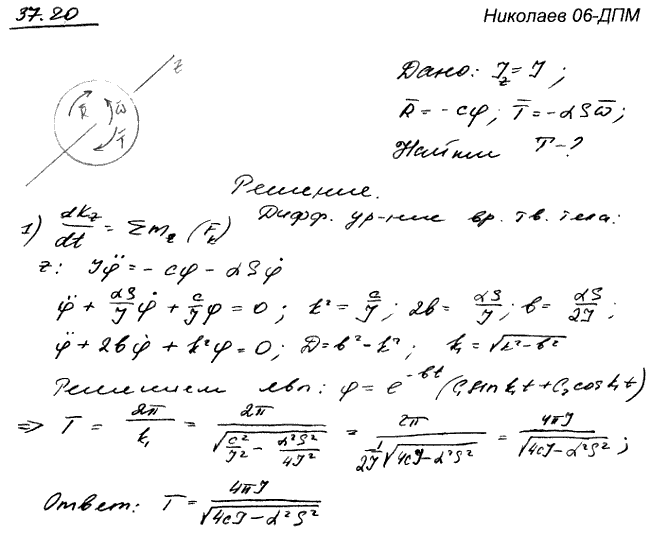 37.20
Николаев 06-ДПМ
z
R̄ ω̄ T̄
Дано: J_z = J ;
R̄ = -cφ ; T̄ = -αSω̄ ;
Найти T-?
Решение.
1) dK_z/dt = Σm_z (F̄_k) Дифф. ур-ние вр. тв. тела:
z: Jφ̈ = -cφ - αSφ̇
φ̈ + αS/J φ̇ + c/J φ = 0 ; k² = c/J ; 2b = αS/J ; b = αS/2J ;
φ̈ + 2bφ̇ + k²φ = 0 ; D = b² - k² ; k₁ = √(k² - b²)
Решением явл: φ = e^(-bt) (C₁sin k₁t + C₂cos k₁t)
=> T = 2π/k₁ = 2π/√(c²/J² - α²S²/4J²) = 2π/(1/2J √(4cJ - α²S²)) = 4πJ/√(4cJ - α²S²) ;
Ответ: T = 4πJ/√(4cJ - α²S²)